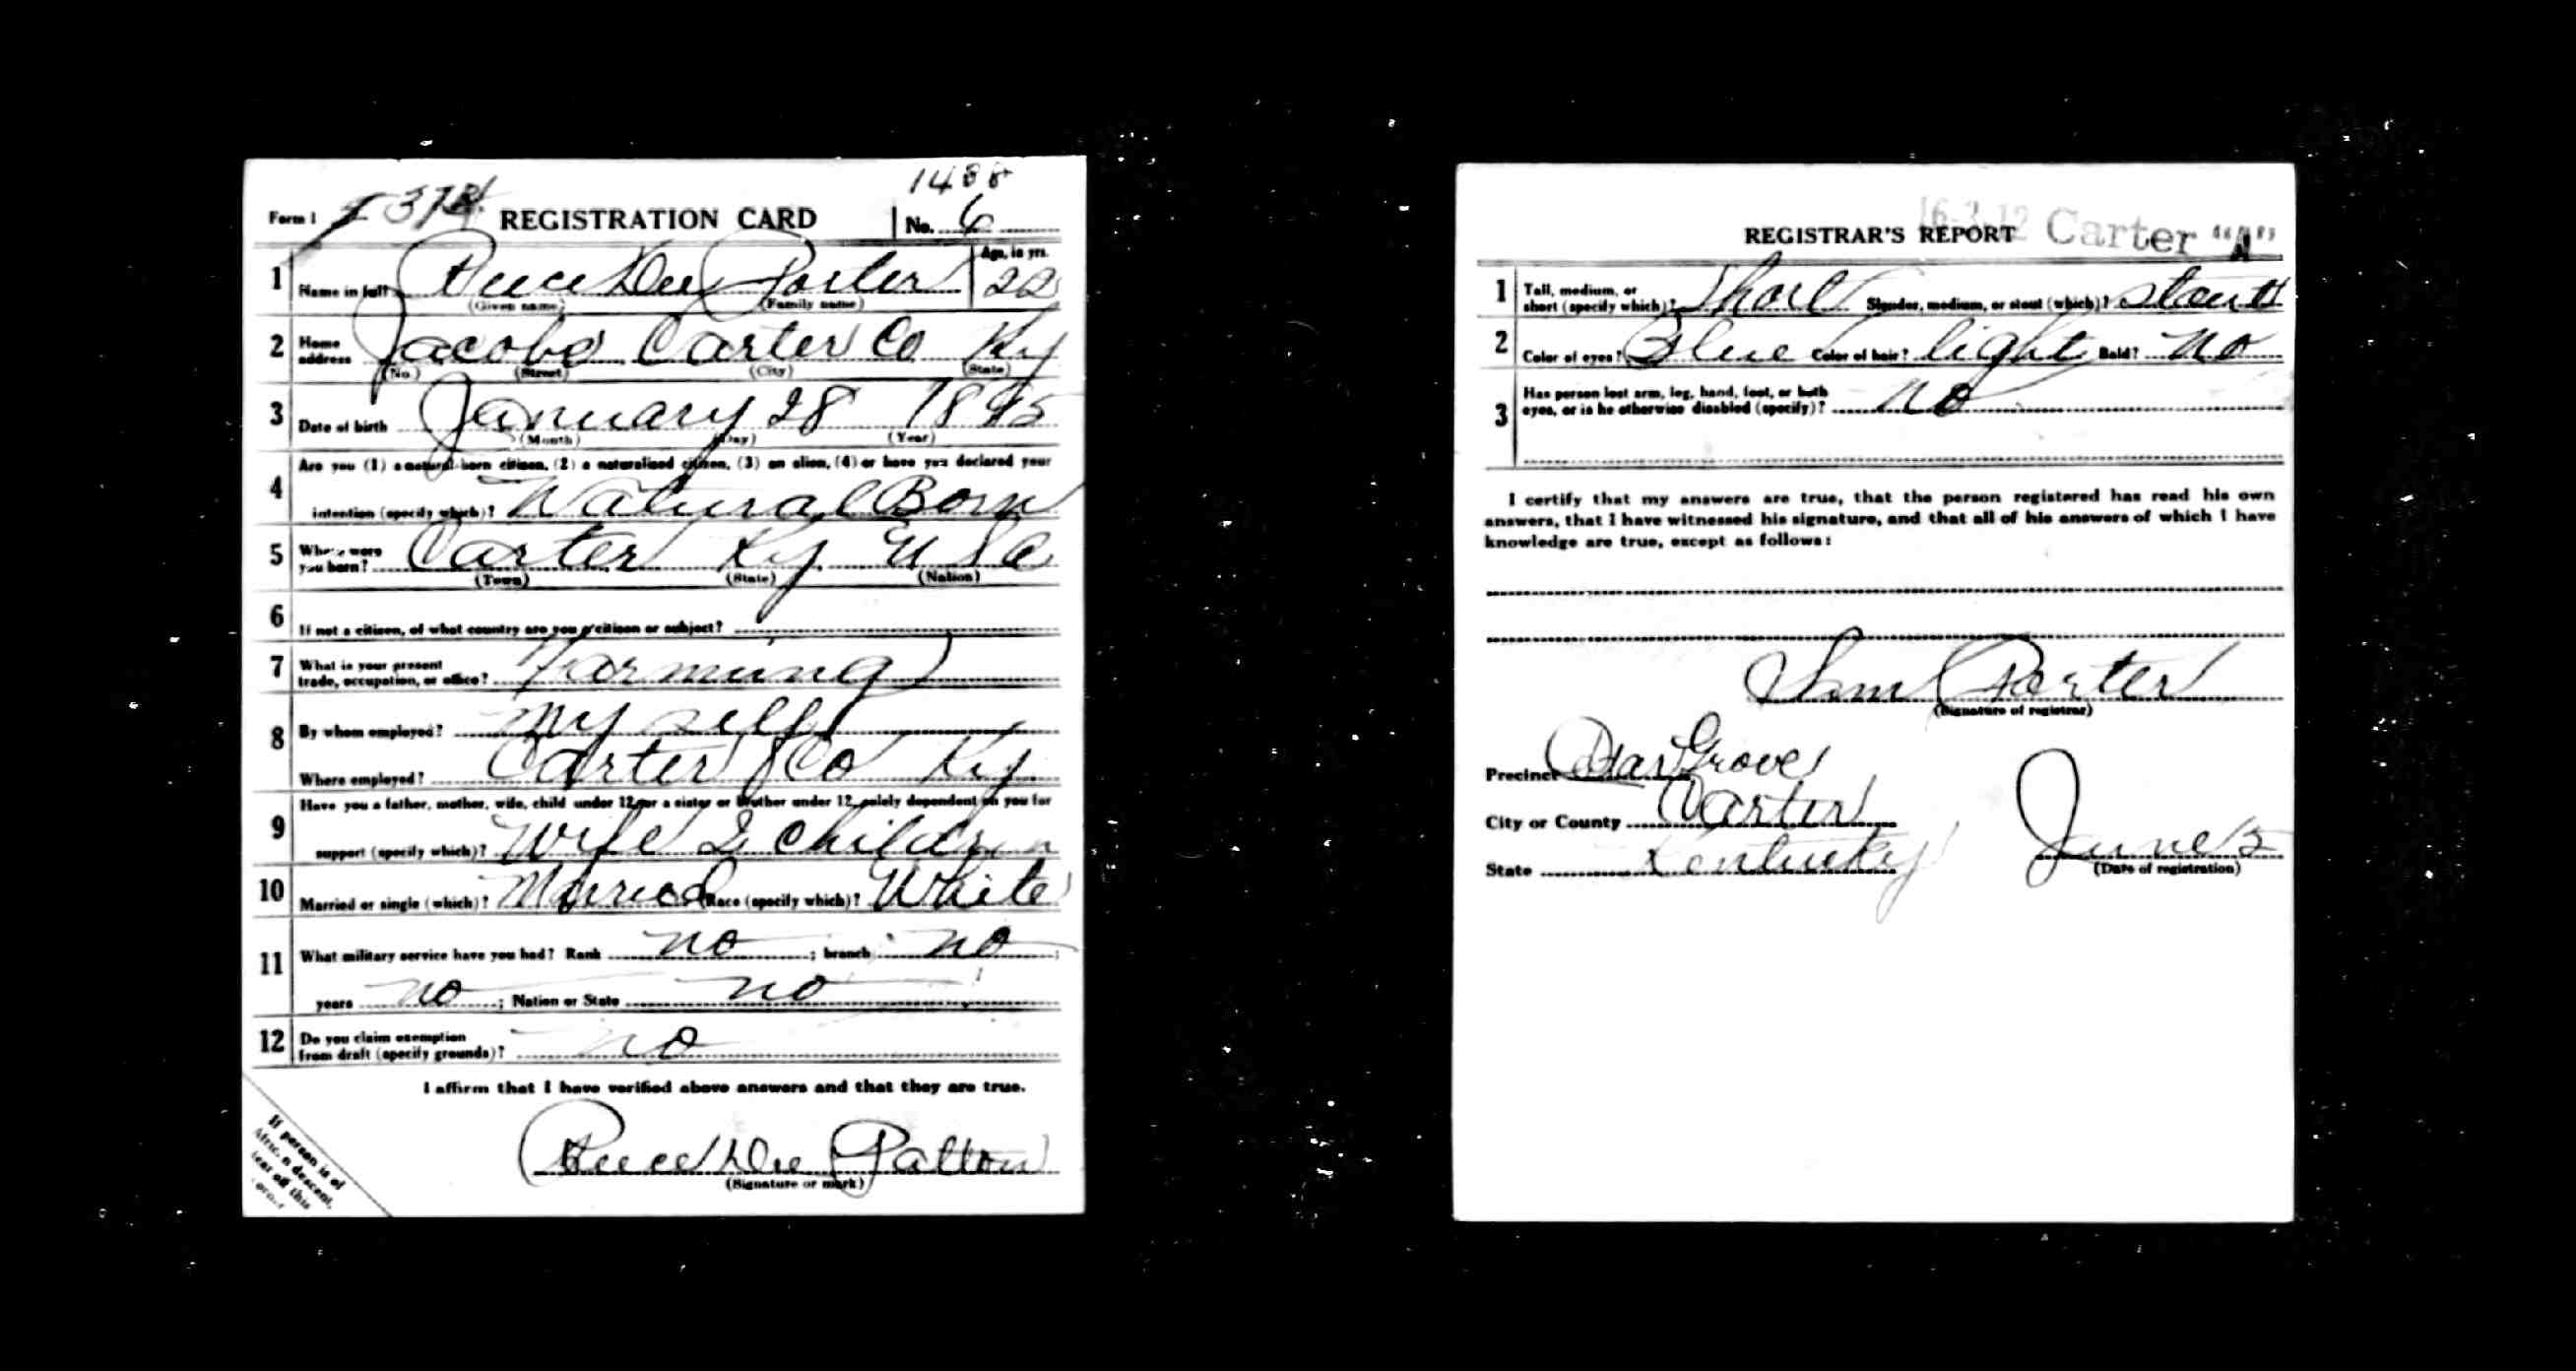 1488
Form 1 REGISTRATION CARD No. 6
1 Name in full Porter Age, in yrs. 22
(Given name) (Family name)
2 Home address Jacobs Carter Co Ky
(No.) (Street) (City) (State)
3 Date of birth January 28 1895
(Month) (Day) (Year)
4 Are you (1) a natural-born citizen, (2) a naturalized citizen, (3) an alien, (4) or have you declared your
intention (specify which)? Natural Born
5 Where were you born? Carter Ky U S A
(Town) (State) (Nation)
6 If not a citizen, of what country are you a citizen or subject?
7 What is your present trade, occupation, or office? Farming
8 By whom employed? My self
Where employed? Carter Co Ky
9 Have you a father, mother, wife, child under 12, or a sister or brother under 12, solely dependent on you for
support (specify which)? Wife 2 Children
10 Married or single (which)? Married Race (specify which)? White
11 What military service have you had? Rank no ; branch no ;
years no ; Nation or State no
12 Do you claim exemption from draft (specify grounds)? no
I affirm that I have verified above answers and that they are true.
Patton
(Signature or mark)
If person is of
African descent,
tear off this
corner
REGISTRAR'S REPORT Carter "A"
1 Tall, medium, or short (specify which)? Short Slender, medium, or stout (which)? stout
2 Color of eyes? Blue Color of hair? light Bald? no
3 Has person lost arm, leg, hand, foot, or both
eyes, or is he otherwise disabled (specify)? no
I certify that my answers are true, that the person registered has read his own
answers, that I have witnessed his signature, and that all of his answers of which I have
knowledge are true, except as follows:
Sam Porter
(Signature of registrar)
Precinct Grove
City or County Carter
State Kentucky June 5
(Date of registration)